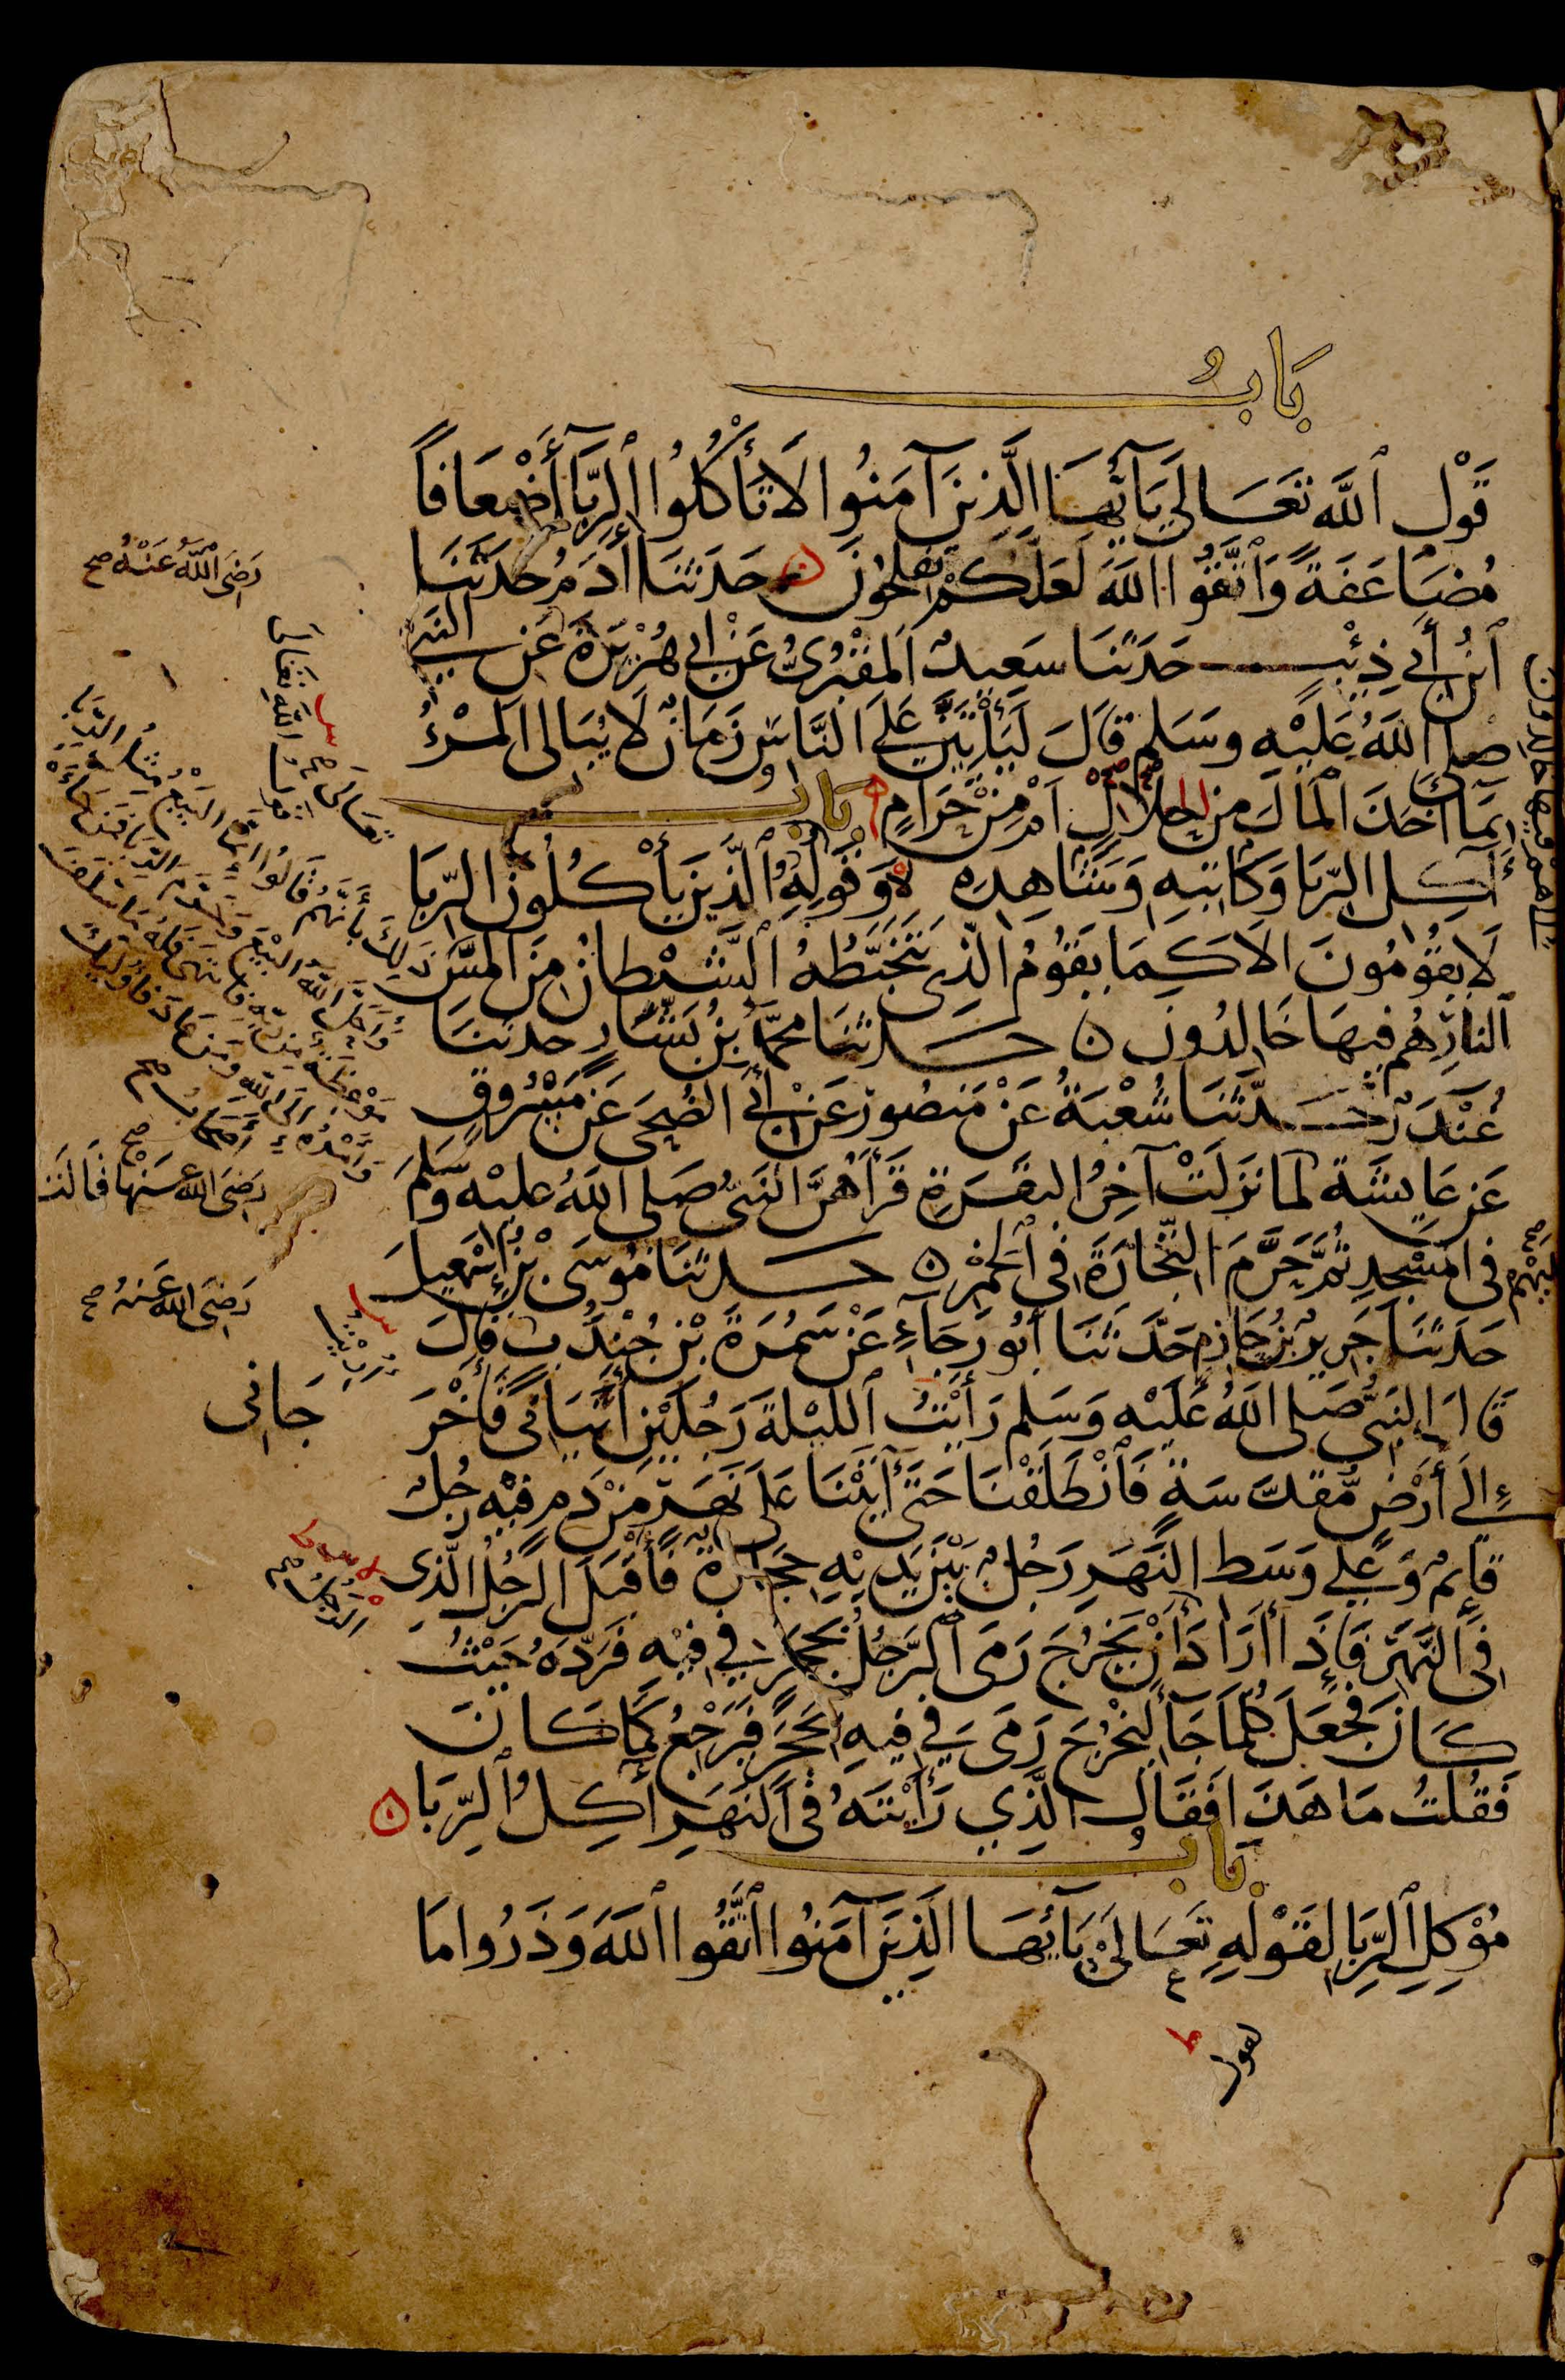 بَابُ
قَوْلِ ٱللَّهِ تَعَالَى يَآ أَيُّهَا الَّذِينَ آمَنُوا لَا تَأْكُلُوا الرِّبَا أَضْعَافًا
مُضَاعَفَةً وَاتَّقُوا اللَّهَ لَعَلَّكُمْ تُفْلِحُونَ حَدَّثَنَا آدَمُ حَدَّثَنَا
ٱبْنُ أَبِي ذِئْبٍ حَدَّثَنَا سَعِيدٌ الْمَقْبُرِيُّ عَنْ أَبِي هُرَيْرَةَ عَنِ النَّبِيِّ
صَلَّى اللَّهُ عَلَيْهِ وَسَلَّمَ قَالَ لَيَأْتِيَنَّ عَلَى النَّاسِ زَمَانٌ لَا يُبَالِي الْمَرْءُ
بِمَا أَخَذَ الْمَالَ مِنْ الحَلَالٍ أَمْ مِنْ حَرَامٍ بَابُ
آكِلِ الرِّبَا وَكَاتِبِهِ وَشَاهِدِهِ وَقَوْلِهِ الَّذِينَ يَأْكُلُونَ الرِّبَا
لَا يَقُومُونَ إِلَّا كَمَا يَقُومُ الَّذِي يَتَخَبَّطُهُ ٱلشَّيْطَانُ مِنَ الْمَسِّ
ٱلنَّارِ هُمْ فِيهَا خَالِدُونَ ن حَدَّثَنَا مُحَمَّدُ بْنُ بَشَّارٍ حَدَّثَنَا
غُنْدَرٌ حَدَّثَنَا شُعْبَةُ عَنْ مَنْصُورٍ عَنْ أَبِي الضُّحَى عَنْ مَسْرُوقٍ
عَنْ عَايِشَةَ لَمَّا نَزَلَتْ آخِرُ الْبَقَرَةِ قَرَأَهُنَّ النَّبِيُّ صَلَّى اللَّهُ عَلَيْهِ وَسَلَّمَ
فِي الْمَسْجِدِ ثُمَّ حَرَّمَ التِّجَارَةَ فِي الْخَمْرِ ن حَدَّثَنَا مُوسَى بْنُ إِسْمَعِيلَ
حَدَّثَنَا جَرِيرُ بْنُ حَازِمٍ حَدَّثَنَا أَبُو رَجَاءٍ عَنْ سَمُرَةَ بْنِ جُنْدُبٍ قَالَ
قَالَ النَّبِيُّ صَلَّى اللَّهُ عَلَيْهِ وَسَلَّمَ رَأَيْتُ ٱللَّيْلَةَ رَجُلَيْنِ أَتَيَانِي فَأَخْرَجَا
نِي إِلَى أَرْضٍ مُقَدَّسَةٍ فَٱنْطَلَقْنَا حَتَّى أَتَيْنَا عَلَى نَهَرٍ مِنْ دَمٍ فِيهِ رَجُلٌ
قَائِمٌ وَعَلَى وَسَطِ النَّهَرِ رَجُلٌ بَيْنَ يَدَيْهِ حِجَارَةٌ فَأَقْبَلَ الرَّجُلُ الَّذِي
فِي النَّهَرِ فَإِذَا أَرَادَ أَنْ يَخْرُجَ رَمَى ٱلرَّجُلُ بِحَجَرٍ فِي فِيهِ فَرَدَّهُ حَيْثُ
كَانَ فَجَعَلَ كُلَّمَا جَآءَ لِيَخْرُجَ رَمَى فِي فِيهِ بِحَجَرٍ فَيَرْجِعُ كَمَا كَانَ
فَقُلْتُ مَا هَذَا فَقَالَ الَّذِي رَأَيْتَهُ فِي النَّهَرِ آكِلُ ٱلرِّبَا ن
بَابُ
مُوكِلِ ٱلرِّبَا لِقَوْلِهِ تَعَالَى يَآ أَيُّهَا الَّذِينَ آمَنُوا ٱتَّقُوا اللَّهَ وَذَرُوا مَا
لقول
رَضِيَ اللَّهُ عَنْهُ صح
تَعَالَى صح
ذَلِكَ بِأَنَّهُمْ قَالُوا إِنَّمَا الْبَيْعُ مِثْلُ الرِّبَا
وَأَحَلَّ اللَّهُ الْبَيْعَ وَحَرَّمَ الرِّبَا فَمَنْ جَاءَهُ
مَوْعِظَةٌ مِنْ رَبِّهِ فَانْتَهَى فَلَهُ مَا سَلَفَ
وَأَمْرُهُ إِلَى اللَّهِ وَمَنْ عَادَ فَأُولَئِكَ
أَصْحَابُ صح
رَضِيَ اللَّهُ عَنْهَا قَالَتْ صح
رَضِيَ اللَّهُ عَنْهُ صح
جَانِي
الرَّجُلُ صح
هُمْ فِيهَا خَالِدُونَ
عَلَيْهِمْ صح